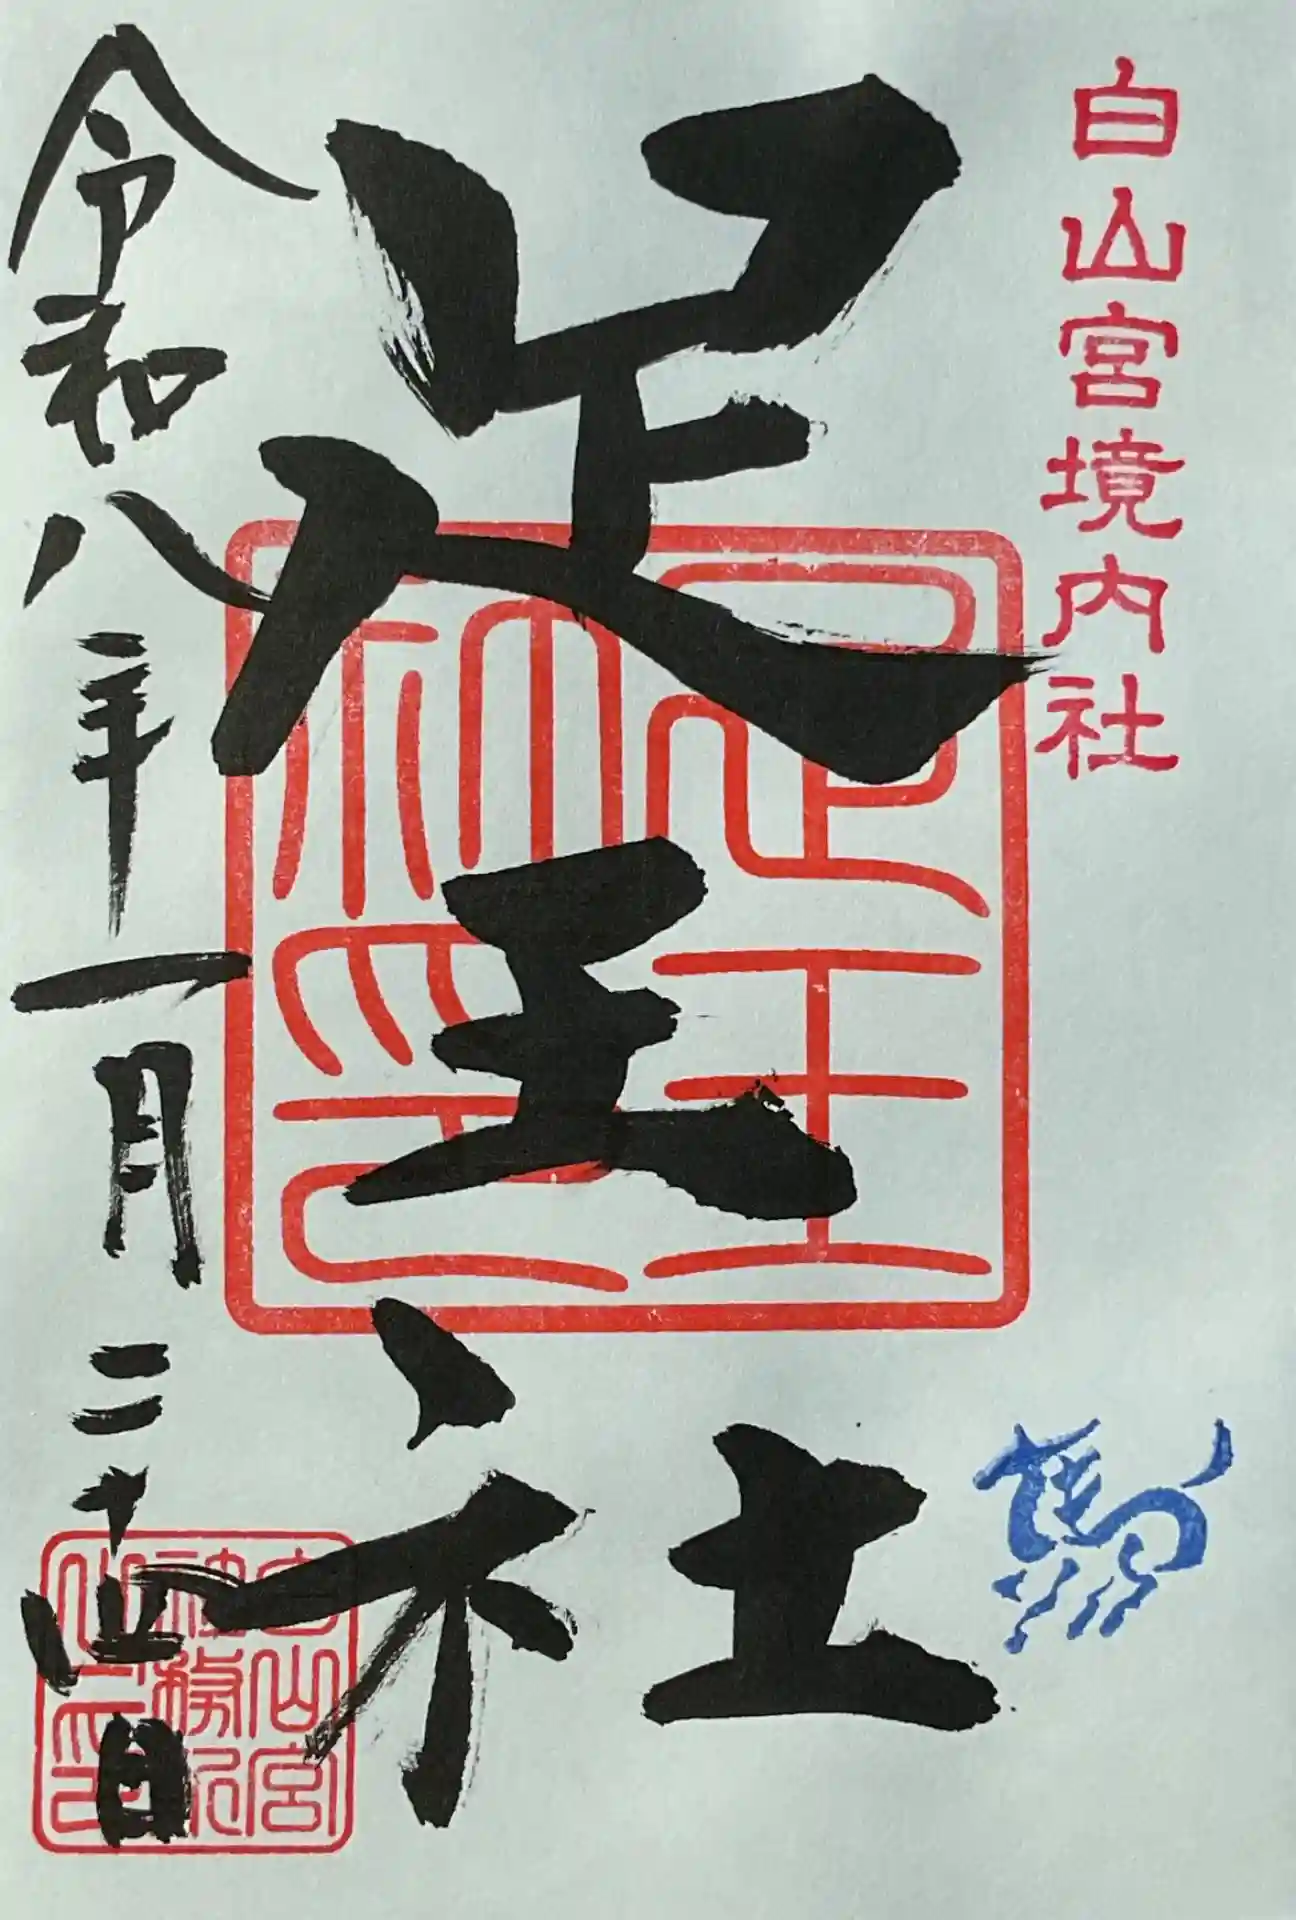 白山宮境内社
足王社
令和八年一月二十四日
足王神印
白山宮
社務所
之印